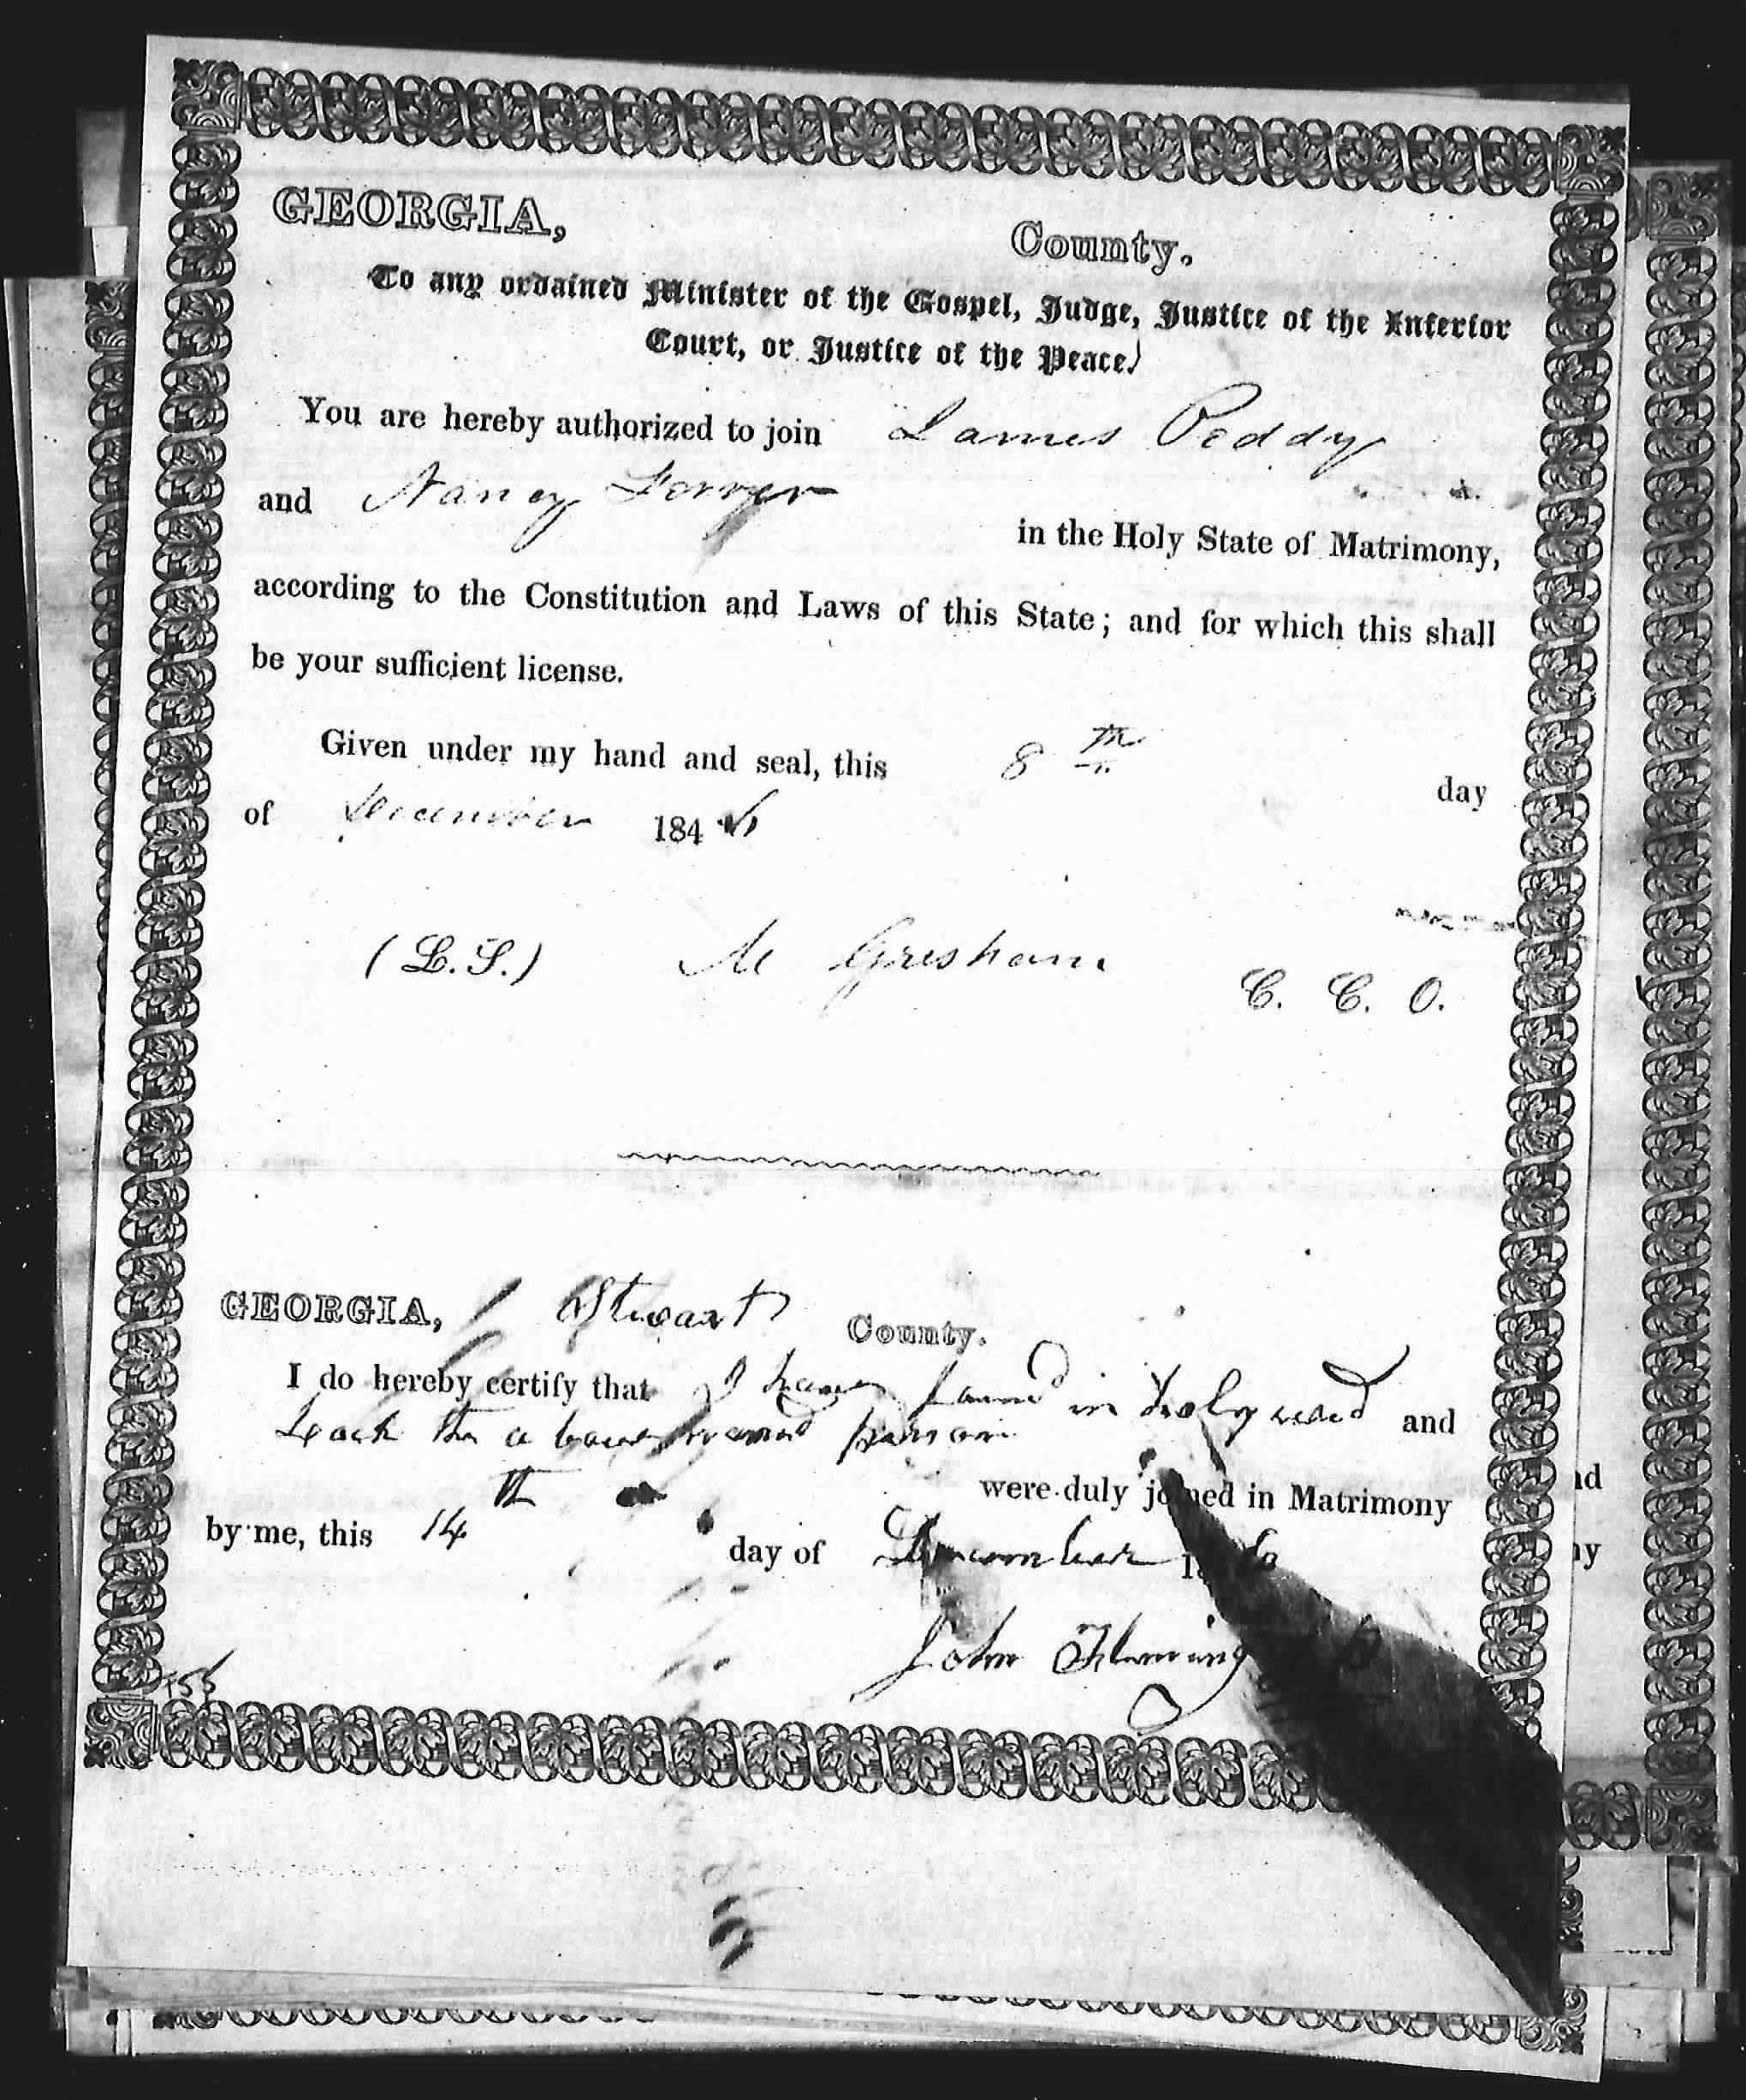 GEORGIA, County.
To any ordained Minister of the Gospel, Judge, Justice of the Inferior
Court, or Justice of the Peace.
You are hereby authorized to join James Peddy
and Nancy
in the Holy State of Matrimony,
according to the Constitution and Laws of this State; and for which this shall
be your sufficient license.
Given under my hand and seal, this 8th day
of December 1846
(L.S.) M Gresham C. C. O.
GEORGIA, Stewart County.
I do hereby certify that I have in and
the above person
were duly joined in Matrimony
by me, this 14th day of December
John Fleming
nd
ny